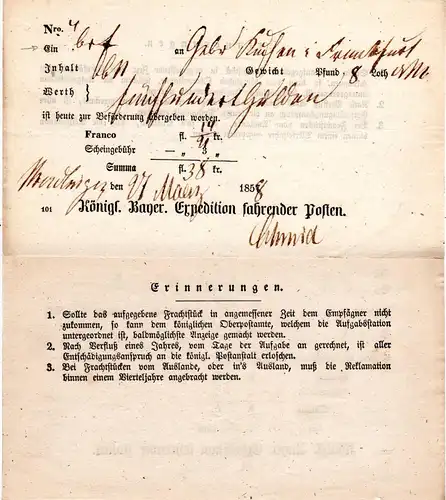 Nro. 4
Ein brf an Gebr Kuchen : Frankfurt
Inhalt Gewicht Pfund 8 Loth a/M
Werth } fünfhundert Gulden
ist heute zur Beförderung übergeben worden.
Franco fl. 14 kr.
Scheingebühr — „ 3 „
Summa fl. 38 kr.
den 27 März 1858
101 Königl. Bayer. Expedition fahrender Posten.
Schmid
Erinnerungen.
1. Sollte das aufgegebene Frachtstück in angemessener Zeit dem Empfänger nicht
zukommen, so kann dem königlichen Oberpostamte, welchem die Aufgabsstation
untergeordnet ist, baldmöglichste Anzeige gemacht werden.
2. Nach Verfluß eines Jahres, vom Tage der Aufgabe an gerechnet, ist aller
Entschädigungsanspruch an die königl. Postanstalt erloschen.
3. Bei Frachtstücken vom Auslande, oder in's Ausland, muß die Reklamation
binnen einem Vierteljahre angebracht werden.